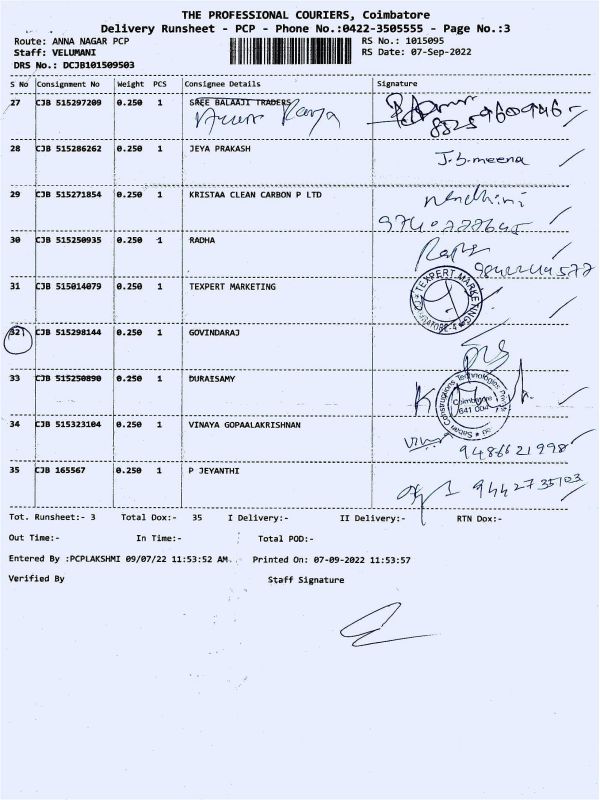 THE PROFESSIONAL COURIERS, Coimbatore
Delivery Runsheet - PCP - Phone No.:0422-3505555 - Page No.:3
Route: ANNA NAGAR PCP
RS No.: 1015095
Staff: VELUMANI
RS Date: 07-Sep-2022
DRS No.: DCJB101509503
S No Consignment No Weight PCS Consignee Details Signature
27 CJB 515297209 0.250 1 SREE BALAAJI TRADERS
28 CJB 515286262 0.250 1 JEYA PRAKASH J.b.meena
29 CJB 515271854 0.250 1 KRISTAA CLEAN CARBON P LTD Nandhini
30 CJB 515250935 0.250 1 RADHA
31 CJB 515014079 0.250 1 TEXPERT MARKETING TEXPERT MARKETING
32 CJB 515298144 0.250 1 GOVINDARAJ
33 CJB 515250890 0.250 1 DURAISAMY
Coimbatore
641 004
34 CJB 515323104 0.250 1 VINAYA GOPAALAKRISHNAN
9486621998
35 CJB 165567 0.250 1 P JEYANTHI 9442735103
Tot. Runsheet:- 3 Total Dox:- 35 I Delivery:- II Delivery:- RTN Dox:-
Out Time:- In Time:- Total POD:-
Entered By :PCPLAKSHMI 09/07/22 11:53:52 AM Printed On: 07-09-2022 11:53:57
Verified By Staff Signature